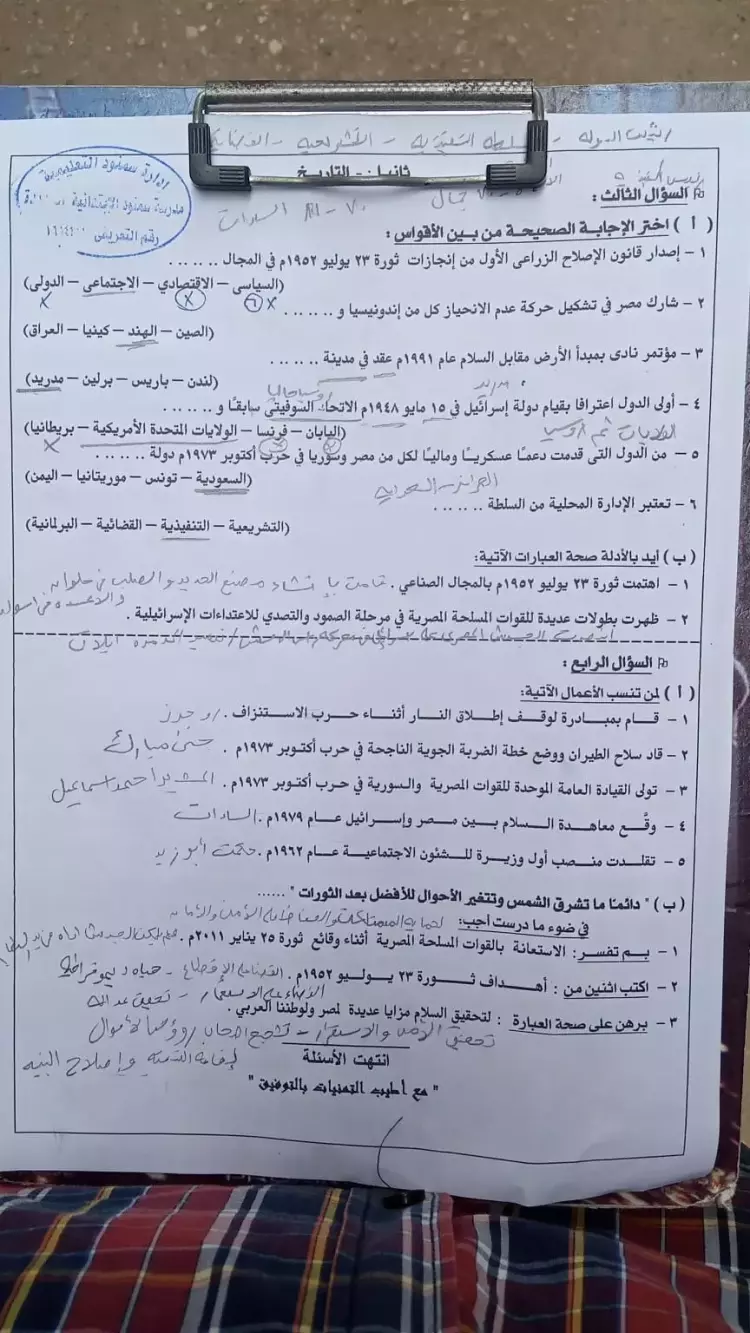 رئيس الدولة - السلطة التنفيذية - التشريعية - القضائية
ثانيا:- التاريخ
إدارة سمنود التعليمية
رقم التعريفى
جمال
السادات ٧٠ - ٨١
السؤال الثالث :
( أ ) اختر الإجابة الصحيحة من بين الأقواس :
١ – إصدار قانون الإصلاح الزراعى الأول من إنجازات ثورة ٢٣ يوليو ١٩٥٢م في المجال .......
(السياسى – الاقتصادي – الاجتماعى – الدولى)
٢ – شارك مصر في تشكيل حركة عدم الانحياز كل من إندونيسيا و .......
(الصين – الهند – كينيا – العراق)
٣ – مؤتمر نادى بمبدأ الأرض مقابل السلام عام ١٩٩١م عقد في مدينة .......
(لندن – باريس – برلين – مدريد)
مدريد
روسيا حاليا
٤ – أولى الدول اعترافا بقيام دولة إسرائيل في ١٥ مايو ١٩٤٨م الاتحاد السوفيتى سابقًا و .......
(اليابان – فرنسا – الولايات المتحدة الأمريكية – بريطانيا)
الولايات ثم روسيا
٥ – من الدول التى قدمت دعمًا عسكريًا وماليًا لكل من مصر وسوريا في حرب أكتوبر ١٩٧٣م دولة .......
(السعودية – تونس – موريتانيا – اليمن)
الجزائر - السعودية
٦ – تعتبر الإدارة المحلية من السلطة .......
(التشريعية – التنفيذية – القضائية – البرلمانية)
(ب) أيد بالأدلة صحة العبارات الآتية:
١ – اهتمت ثورة ٢٣ يوليو ١٩٥٢م بالمجال الصناعي . قامت بإنشاء مصنع الحديد والصلب في حلوان
٢ – ظهرت بطولات عديدة للقوات المسلحة المصرية في مرحلة الصمود والتصدي للاعتداءات الإسرائيلية .
السؤال الرابع :
( أ ) لمن تنسب الأعمال الآتية:
١ – قــام بمبـادرة لوقــف إطــلاق النـار أثنــاء حــرب الاسـتنزاف . روجرز
٢ – قاد سلاح الطيران ووضع خطة الضربة الجوية الناجحة في حرب أكتوبر ١٩٧٣م . حسنى مبارك
٣ – تولى القيادة العامة الموحدة للقوات المصرية والسورية في حرب أكتوبر ١٩٧٣م . المشير احمد اسماعيل
٤ – وقَّع معاهدة السلام بين مصر وإسرائيل عام ١٩٧٩م . السادات
٥ – تقلدت منصب أول وزيرة للشئون الاجتماعية عام ١٩٦٢م . حكمت أبو زيد
(ب) " دائمًا ما تشرق الشمس وتتغير الأحوال للأفضل بعد الثورات " ......
في ضوء ما درست أجب:
١ – بــم تفسر : الاستعانة بالقوات المسلحة المصرية أثناء وقائع ثورة ٢٥ يناير ٢٠١١م .
٢ – اكتب اثنين من : أهداف ثــورة ٢٣ يــوليو ١٩٥٢م . القضاء على الإقطاع - حياة ديموقراطية
٣ – برهن على صحة العبارة : لتحقيق السلام مزايا عديدة لمصر ولوطننا العربي .
تحقيق الأمن والاستقرار -
انتهت الأسئلة
" مع أطيب التمنيات بالتوفيق "